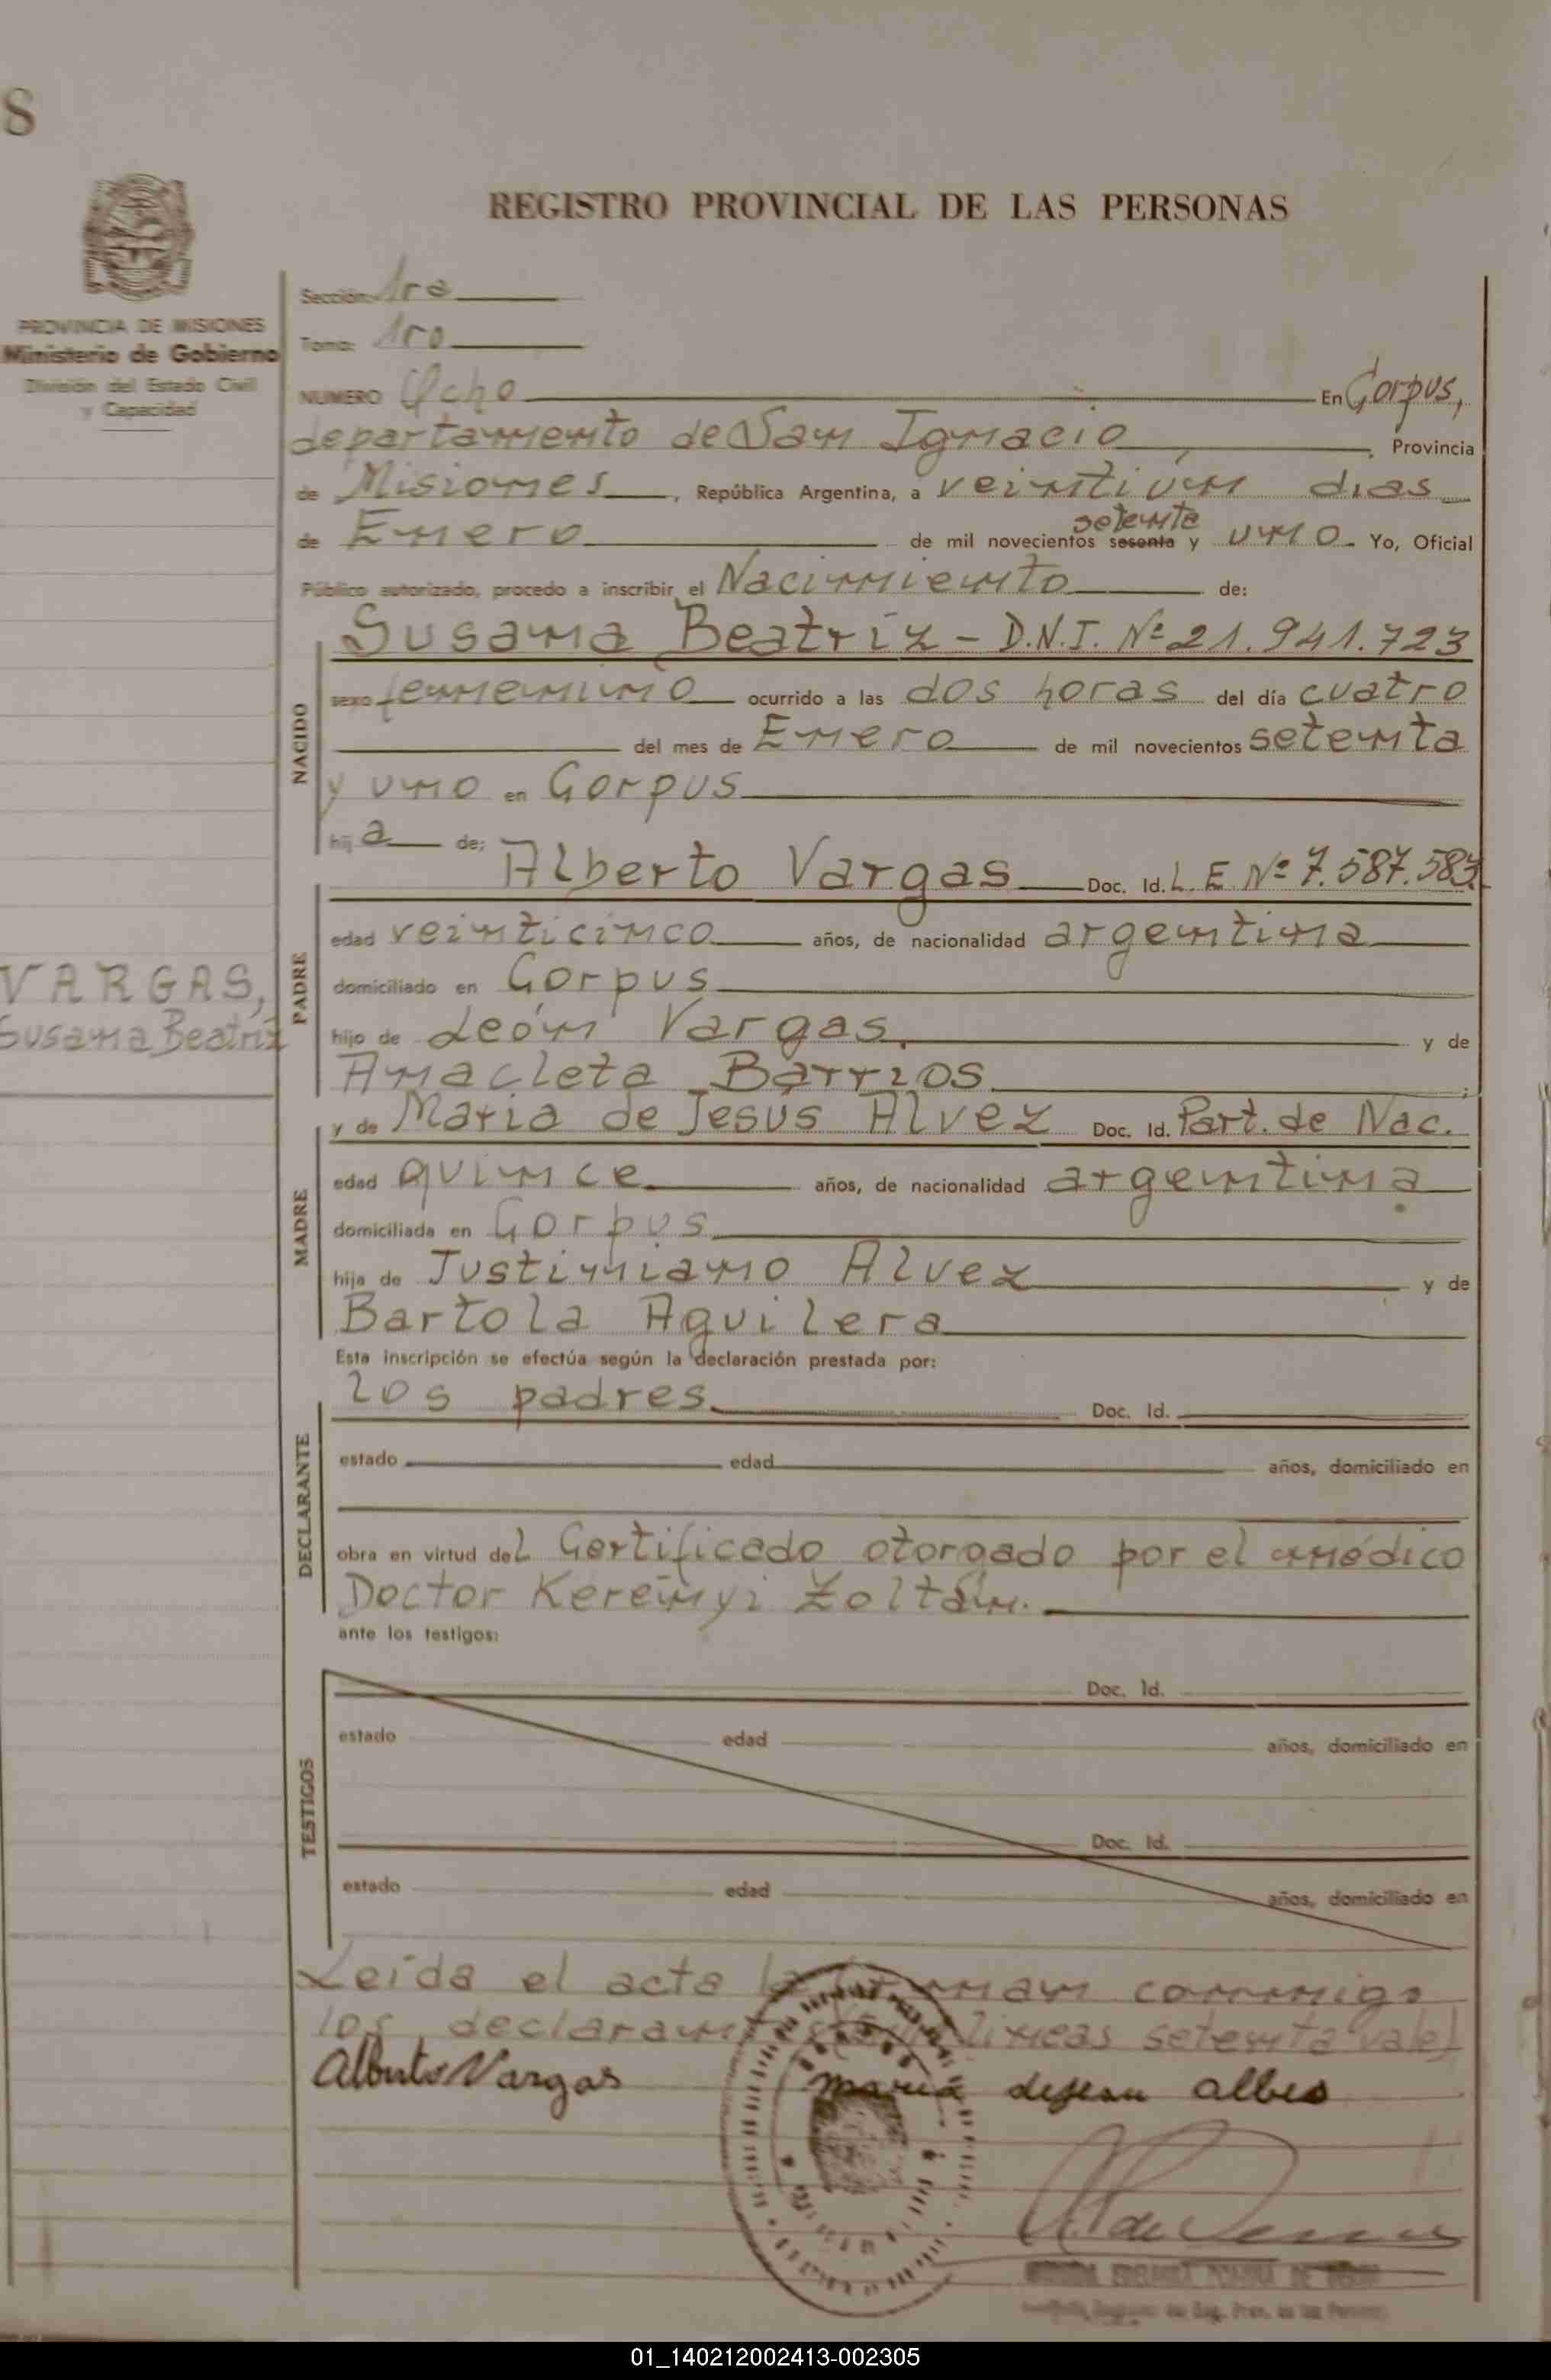 S
REGISTRO PROVINCIAL DE LAS PERSONAS
PROVINCIA DE MISIONES
Ministerio de Gobierno
División del Estado Civil
y Capacidad
Sección 1ra
Tomo: 1ro
NUMERO Ocho En Corpus,
departamento de San Ignacio, Provincia
de Misiones, República Argentina, a veintiún dias
setenta
de Enero de mil novecientos sesenta y uno. Yo, Oficial
Público autorizado, procedo a inscribir el Nacimiento de:
NACIDO
Susana Beatríz - D.N.I. Nº 21.941.723
sexo femenino ocurrido a las dos horas del día cuatro
del mes de Enero de mil novecientos setenta
y uno en Corpus
hij a de:
PADRE
Alberto Vargas Doc. Id. L.E. Nº 7.587.583
edad veinticinco años, de nacionalidad argentina
domiciliado en Corpus
VARGAS,
Susana Beatriz
hijo de León Vargas y de
Anacleta Barrios;
MADRE
y de María de Jesús Alvez Doc. Id. Part. de Nac.
edad quince años, de nacionalidad argentina
domiciliada en Corpus
hija de Justiniano Alvez y de
Bartola Aguilera
Esta inscripción se efectúa según la declaración prestada por:
DECLARANTE
los padres Doc. Id.
estado edad años, domiciliado en
obra en virtud del Certificado otorgado por el médico
Doctor Kerenyi Zoltán.
ante los testigos:
TESTIGOS
Doc. Id.
estado edad años, domiciliado en
Doc. Id.
estado edad años, domiciliado en
Leída el acta la firman conmigo
los declarantes líneas setenta vale)
Alberto Vargas maria dejesu albes
01_140212002413-002305